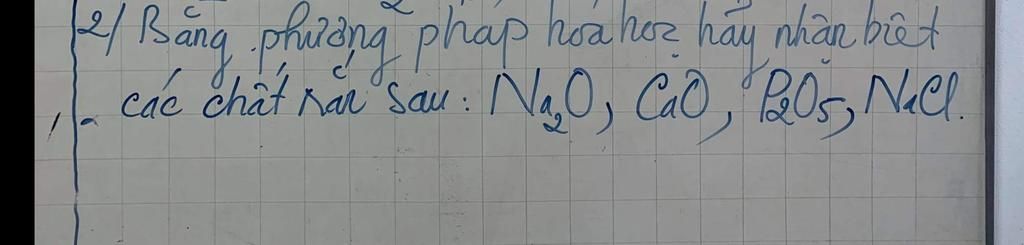 2/ Bằng phương pháp hóa học hãy nhận biết
- các chất rắn sau: Na₂O, CaO, P₂O₅, NaCl.